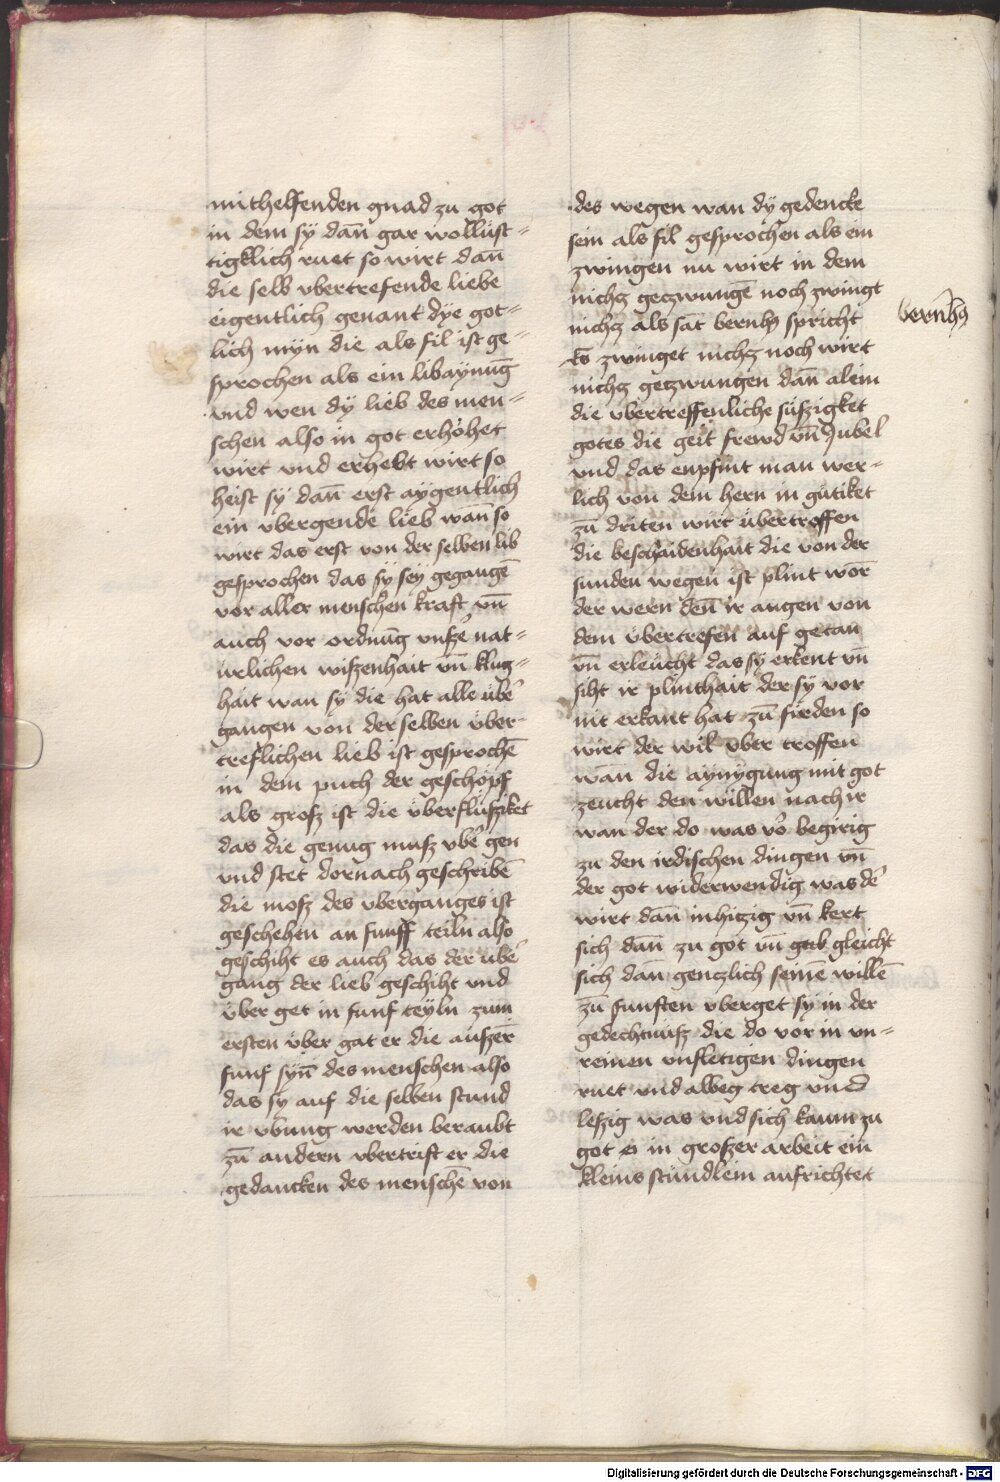 mithelfenden gnad zu got
in dem sÿ dan̄ gar wollust=
tigklich ruet so wirt dan̄
die selb vbertrefende liebe
eigentlich genant dÿe got=
lich mÿn die als fil ist ge=
sprochen als ein libaÿnūg
vnd wen dÿ lieb des men=
schen also in got erhöhet
wirt vnd erhebt wirt so
heist sÿ dan̄ erst aÿgentlich
ein vbergende lieb wan̄ so
wirt das erst von der selben lib
gesprochen das sÿ seÿ gegangē
vor aller menschen kraft vn̄
auch vor ordnūg vnsze᷑ nat=
ürlichen wiszenhait vn̄ klug=
hait wan sÿ die hat alle übe᷑
gangen von der selben über=
treflichen lieb ist gesprochē
in dem puch der geschöpf
als grosz ist die überflüsziket
das die genug musz vbe᷑ gen
vnd stet dornach geschribē
die mosz des vberganges ist
geschehen an funff teiln also
geschiht es auch das der übe᷑
gang der lieb geschiht vnd
über get in funf teÿln zum
ersten über gat er die auszer̄
funf sÿn̄ des menschen also
das sÿ auf die selben stund
ir vbung werden beraubt
zū andern vbertrift er die
gedancken des menschē von
des wegen wan dÿ gedencke
sein als fil gesprochen als ein
zwingen nu wirt in dem
nichz geczwungē noch zwingt
nichz als sāt bernhꝫ spricht
Es zwinget nichz noch wirt
nichz geczwungen dan̄ alein
die vbertreffenliche süszigket
gotes die geit frewd vn̄ Jubel
vnd das enpfint man wer=
lich von dem hern in gütiket
zū driten wirt übertroffen
die beschaidenhait die von der
sunden wegen ist plint wor̄
der wern den̄ ir augen von
dem übertrefen auf getan
vn̄ erleücht das sÿ erkent vn̄
siht ir plinthait der sÿ vor
nit erkant hat zū firden so
wirt der wil vber troffen
wan die aÿnÿgung mit got
zeucht den willen nach ir
wan der do was vō begirig
zu den irdischen dingen vn̄
der got widerwendig was de᷑
wirt dan̄ inhiczig vn̄ kert
sich dan̄ zu got vn̄ gleicht
sich dan̄ genczlich seinē willē
zū funften vberget sÿ in der
gedechtnusz die do vor in vn=
reinen vnfletigen dingen
ruet vnd alweg treg vnd
leszig was vnd sich kaum zu
got in groszer arbeit ein
kleins stündlein aufrichtet
bernhꝫ
Digitalisierung gefördert durch die Deutsche Forschungsgemeinschaft - DFG